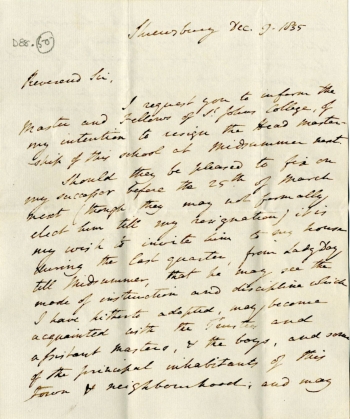 Shrewsbury Dec. 9. 1835
DBE. 50
Reverend Sir,
I request you to inform the
Master and Fellows of St. Johns College, of
my intention to resign the Head Master-
ship of this school at Midsummer next.
Should they be pleased to fix on
my successor before the 25th of March
next (though they may not formally
elect him till my resignation) it is
my wish to invite him to my house
during the last quarter, from Lady Day
till Midsummer, that he may see the
mode of instruction and discipline which
I have hitherto adopted, may become
acquainted with the Trustees and
assistant masters, & the boys, and some
of the principal inhabitants of this
town & neighbourhood; and may